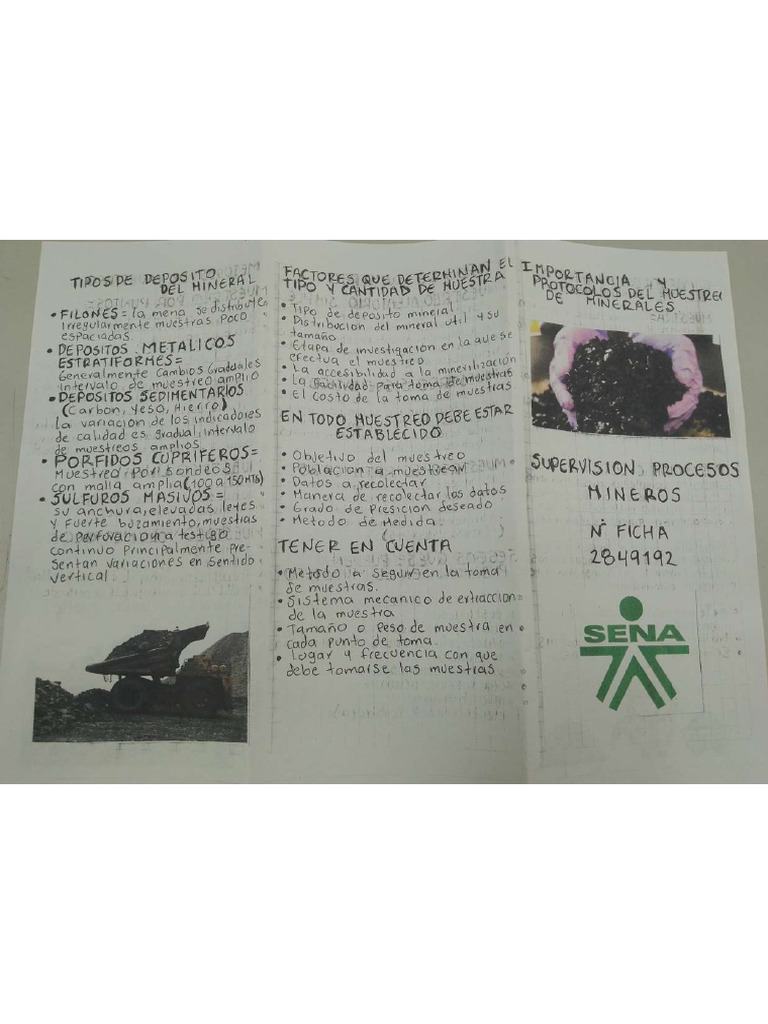 TIPOS DE DEPOSITO
DEL MINERAL
• FILONES = la mena se distribuye
irregularmente muestras poco
espaciadas.
• DEPOSITOS METALICOS
ESTRATIFORMES =
Generalmente cambios graduales
intervalo de muestreo amplio
• DEPOSITOS SEDIMENTARIOS
(Carbon, Yeso, Hierro)
la variacion de los indicadores
de calidad es gradual, intervalo
de muestreos amplios
• PORFIDOS CUPRÍFEROS =
Muestreo Por sondeos
con malla amplia (100 a 150 MTS)
• SULFUROS MASIVOS =
su anchura, elevadas leyes
y fuerte buzamiento, muestras
de perforacion a testigo
continuo Principalmente pre-
sentan variaciones en sentido
vertical.
FACTORES QUE DETERMINAN EL
TIPO Y CANTIDAD DE MUESTRA
• Tipo de deposito mineral
• Distribucion del mineral util y su
tamaño
• Etapa de investigación en la que se
efectua el muestreo
• La accesibilidad a la minerilización
• La facilidad para toma de muestras
• El costo de la toma de muestras
EN TODO MUESTREO DEBE ESTAR
ESTABLECIDO
• Objetivo del muestreo
• Poblacion a muestrear
• Datos a recolectar
• Manera de recolectar los datos
• Grado de Presicion deseado
• Metodo de Medida.
TENER EN CUENTA
• Metodo a seguir en la toma
de muestras.
• Sistema mecanico de extraccion
de la muestra
• Tamaño o Peso de muestra en
cada punto de toma.
• Lugar y frecuencia con que
debe tomarse las muestras
IMPORTANCIA Y
PROTOCOLOS DEL MUESTREO
DE MINERALES
SUPERVISION PROCESOS
MINEROS
N° FICHA
2849192
SENA